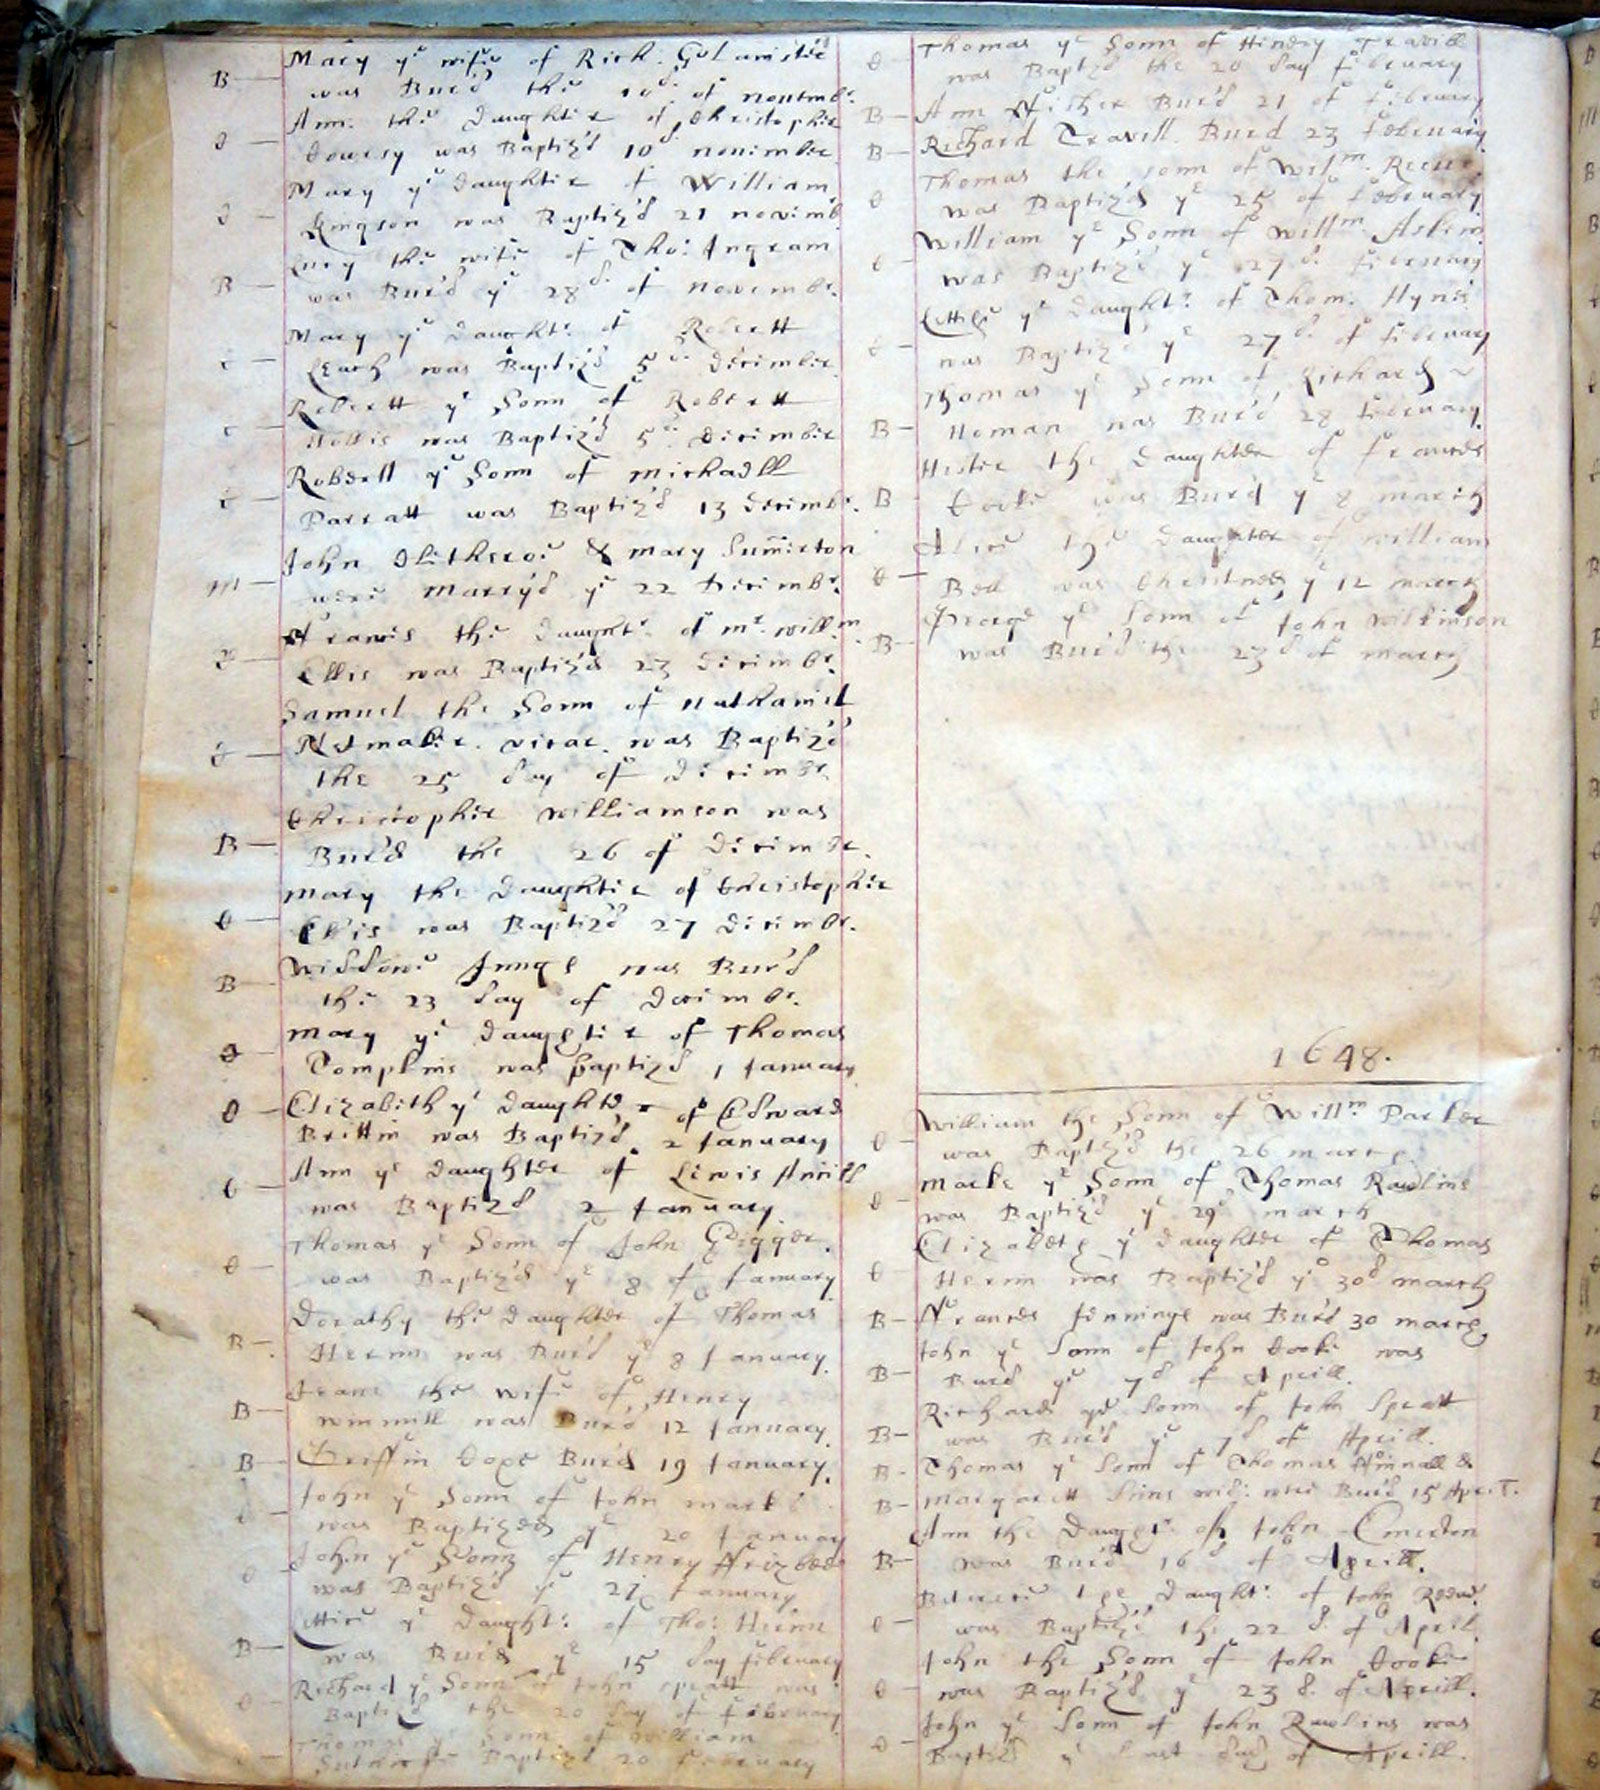 B Mary ye wife of Rich:
was Bur'd the 10d. of nouembr.
Ann. the daughter of Christopher
was Baptiz'd 10d nouimber
Mary ye daughter of William
was Baptiz'd 21 novimb
Lucy the wife of Tho: Ingram
B was Bur'd ye 28d. of Novembr.
Mary ye Daught: of Robertt
Leach was Baptiz'd 5d. December
Robertt ye Sonn of Robertt
Hollis was Baptiz'd 5d. December
Robertt ye Sonn of Michaell
Parratt was Baptiz'd 13 Decimbr.
John & mary Sumerton
m were marry'd ye 22 Decimbr.
the Daught: of mr. willm
Ellis was Baptiz'd 23 Decimbr.
Samuel the Sonn of Nathaniel
vicar. was Baptiz'd
the 25 day of Decimbr
Christopher Williamson was
B Bur'd the 26 of Decimbr.
Mary the Daughter of Christopher
Ellis was Baptiz'd 27 Decimbr.
Widdowe was Bur'd
B the 23 day of Decimbr.
Mary ye daughter of Thomas
Tompkins was Baptizd 1 January
Elizabeth ye Daughter of Edward
Brittin was Baptiz'd 2 January
Ann ye Daughter of Lewis
was Baptizd 2 January
Thomas ye Sonn of John
was Baptiz'd ye 8 of January
Dorathy the Daughter of Thomas
B Hernn was Bur'd ye 8 January
the wife of Henry
B winmill was Bur'd 12 January
B Griffin Cope Bur'd 19 January
John ye Sonn of John
was Baptized ye 20 January
John ye Sonn of Henry
was Baptiz'd ye January
Lettice ye Daught: of Tho: Hernn
B was Bur'd ye 15 day february
Richard ye Sonn of John Spratt was
Baptizd the 20 day of february
Thomas ye Sonn of William
Baptizd 20 february
Thomas ye Sonn of Hendry Travill
was Baptiz'd the 20 day february
B Ann ffisher Bur'd 21 of february
B Richard Travill Bur'd 23 february
Thomas the sonn of Willm.
was Baptiz'd ye 25 of february
William ye Sonn of Willm.
was Baptiz'd ye 27d. february
Lettice ye Daught: of Thom: Hynes
was Baptiz'd ye 27d. of february
Thomas ye Sonn of Richard
B Homan was Bur'd 28 february
Hester the Daughter of frances
B Cooke was Bur'd ye 8 march
Alice the Daughter of William
Bell was Christned ye 12 march
George ye Sonn of John Wilkinson
B was Bur'd the 23d of march
1648.
William the Sonn of Willm Parker
was Baptiz'd the 26 march
Marke ye Sonn of Thomas Rawlins
was Baptiz'd ye 29d march
Elizabeth ye daughter of Thomas
Hernn was Baptiz'd ye 30d march
B ffrances Jennings was Bur'd 30 march
John ye Sonn of John Cooke was
B Bur'd ye 7d of Aprill.
Richard ye Sonn of John Spratt
B was Bur'd ye 7d of Aprill.
B Thomas ye Sonn of Thomas &
B Margarett wid: were Bur'd 15 April.
Ann the Daught: of John Emerton
B was Bur'd 16d of Aprill.
the Daught: of John
was Baptiz'd the 22d. of April
John the Sonn of John Cooke
was Baptiz'd ye 23d. of Aprill.
John ye Sonn of John Rawlins was
Baptizd ye Last day of Aprill.